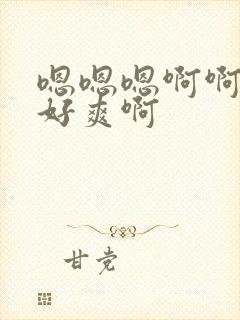 嗯嗯嗯啊啊
好爽啊
甘党